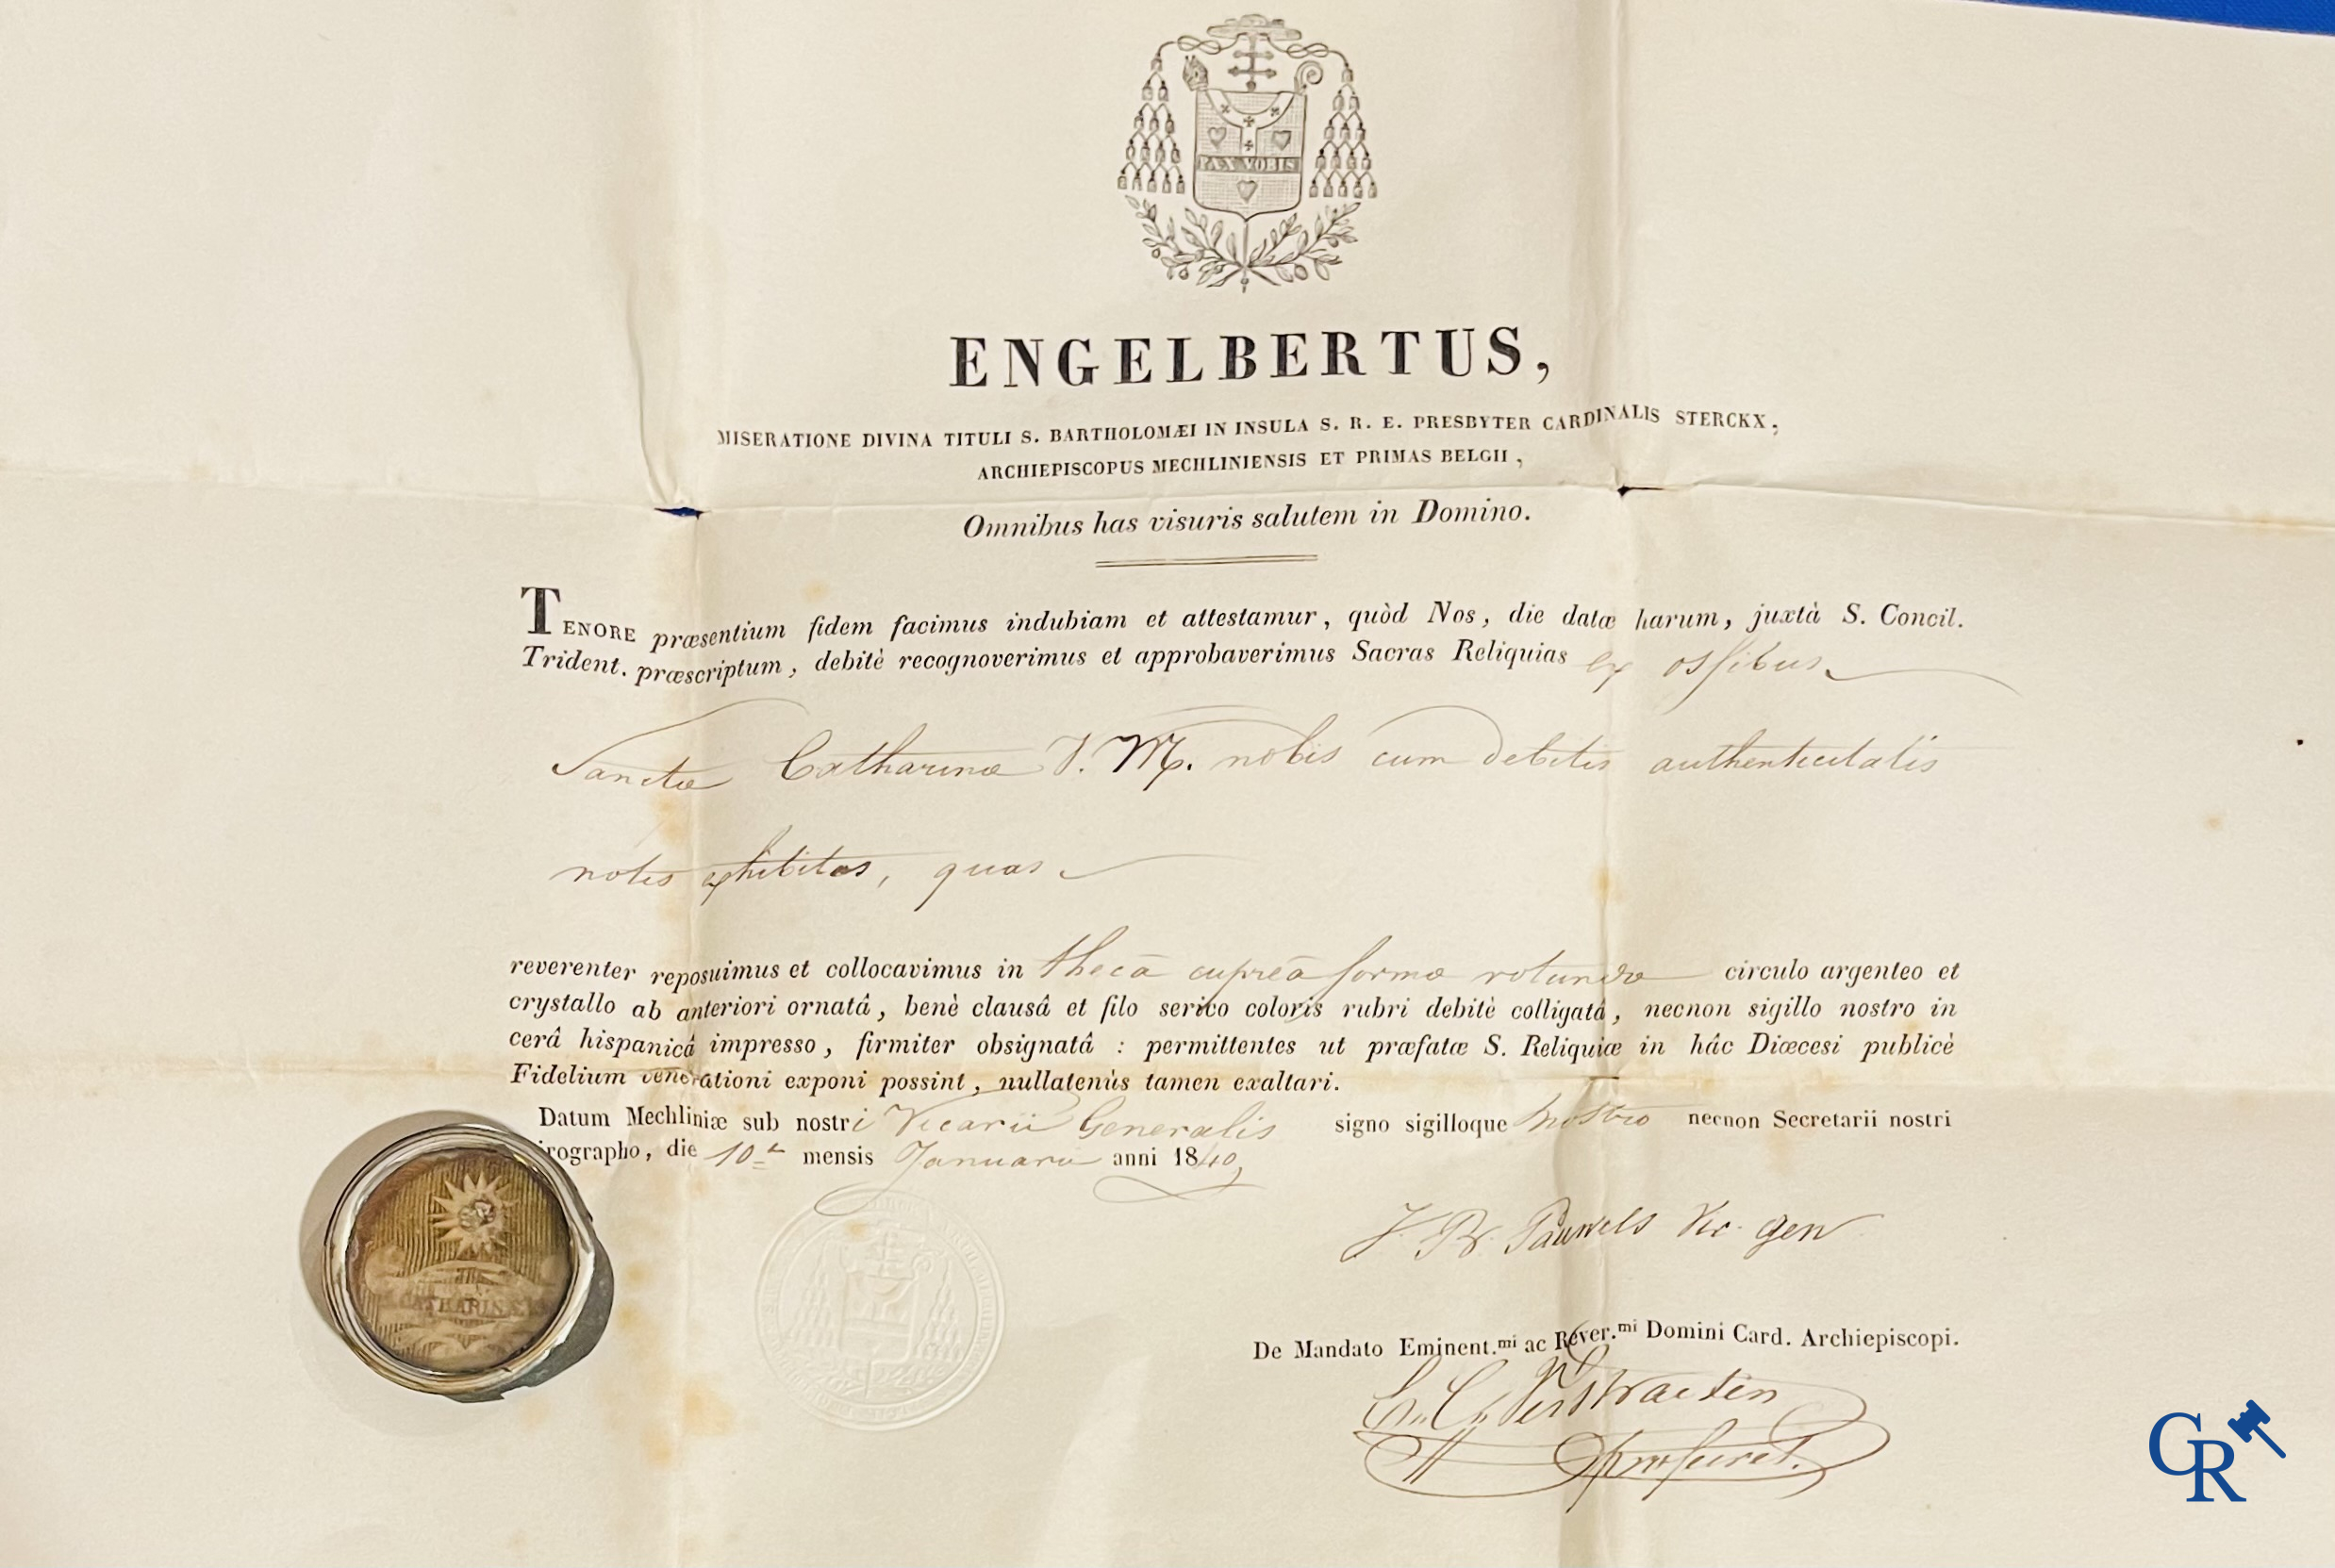 PAX VOBIS
ENGELBERTUS,
MISERATIONE DIVINA TITULI S. BARTHOLOMÆI IN INSULA S. R. E. PRESBYTER CARDINALIS STERCKX,
ARCHIEPISCOPUS MECHLINIENSIS ET PRIMAS BELGII,
Omnibus has visuris salutem in Domino.
TENORE præsentium fidem facimus indubiam et attestamur, quòd Nos, die datæ harum, juxtà S. Concil.
Trident. præscriptum, debitè recognoverimus et approbaverimus Sacras Reliquias ex ossibus
Sanctæ Catharinæ V. M. nobis cum debitis authenticitatis
notis exhibitas, quas
reverenter reposuimus et collocavimus in thecâ cupreâ formæ rotundæ circulo argenteo et
crystallo ab anteriori ornatâ, benè clausâ et filo serico coloris rubri debitè colligatâ, necnon sigillo nostro in
cerâ hispanicâ impresso, firmiter obsignatâ : permittentes ut præfatæ S. Reliquiæ in hâc Diœcesi publicè
Fidelium venerationi exponi possint, nullatenùs tamen exaltari.
Datum Mechliniæ sub nostri Vicarii Generalis signo sigilloque nostro necnon Secretarii nostri
irographo, die 10 mensis Januarii anni 1840,
CATHARINÆ
J. B. Pauwels Vic. gen
De Mandato Eminent.mi ac Rever.mi Domini Card. Archiepiscopi.
Verstraeten
pro secret.
CR